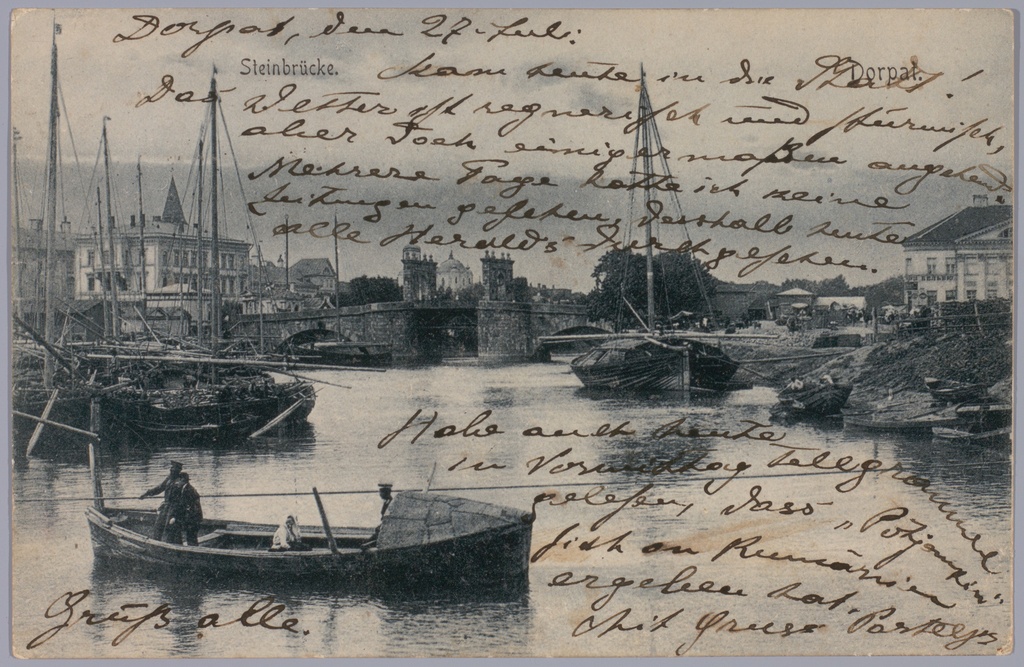 Dorpat, den 27. Juli.
Steinbrücke.
Dorpat.
Kam heute in die Stadt!
Das Wetter oft regnerisch und stürmisch,
aber doch einigermaßen angehend.
Mehrere Tage hatte ich keine
Zeitungen gesehen, deshalb heute
alle Herolds durchgesehen.
Habe auch heute
in Vormittag Telegrammel
gelesen, dass "Potjomkin"
sich an Rumänien
ergeben hat.
Mit Gruss
Grüß alle.